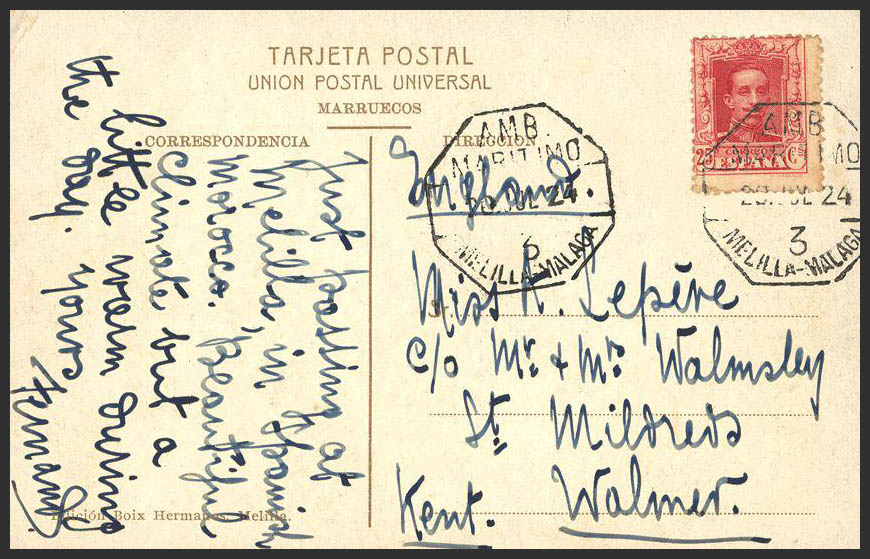 TARJETA POSTAL
UNION POSTAL UNIVERSAL
MARRUECOS
CORRESPONDENCIA
DIRECCION
Just posting at
Melilla, in Spanish
Morocco. Beautiful
climate but a
little warm during
the day. Yours
England.
Miss A. Lepère
c/o Mr. & Mrs Walmsley
St. Mildreds
Walmer.
Kent.
AMB.
MARITIMO
JUL 24
3
MELILLA-MALAGA
25 Cs
ESPAÑA
AMB
MARITIMO
JUL 24
3
MELILLA-MALAGA
Edición Boix Hermanos, Melilla.